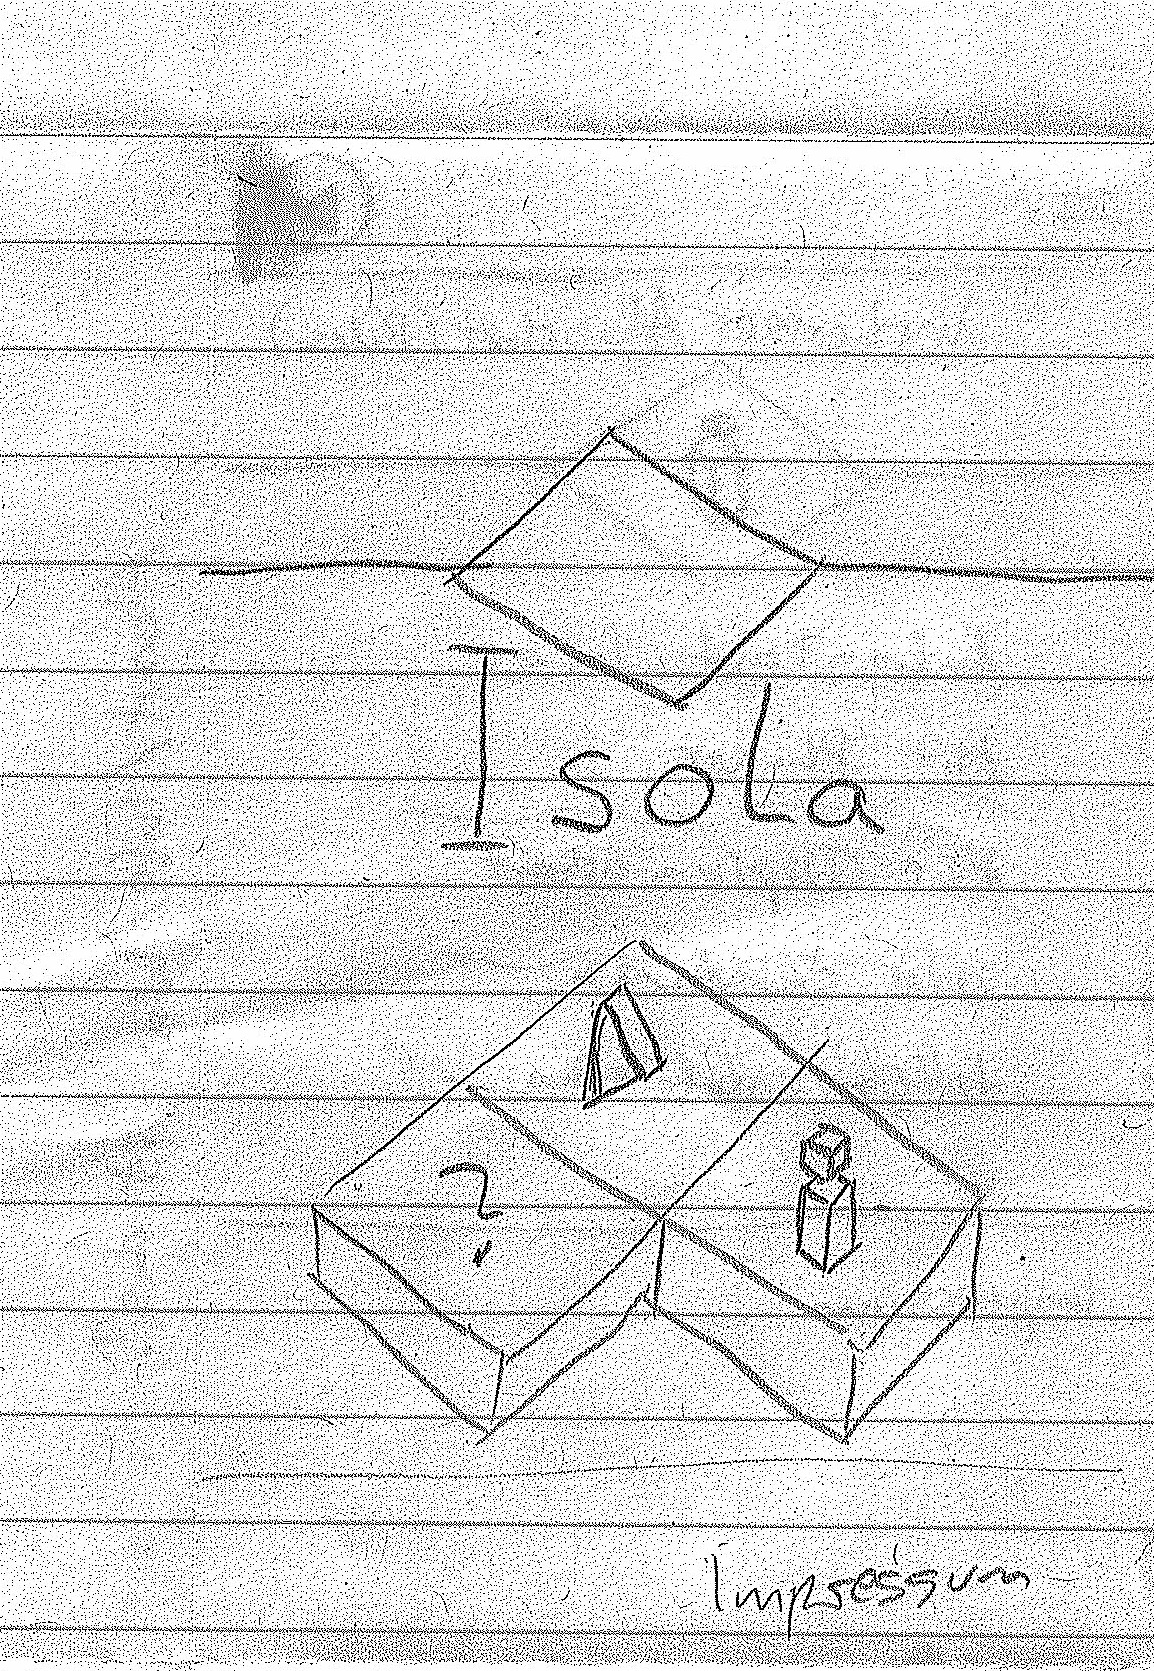 Isola
?
Impressum